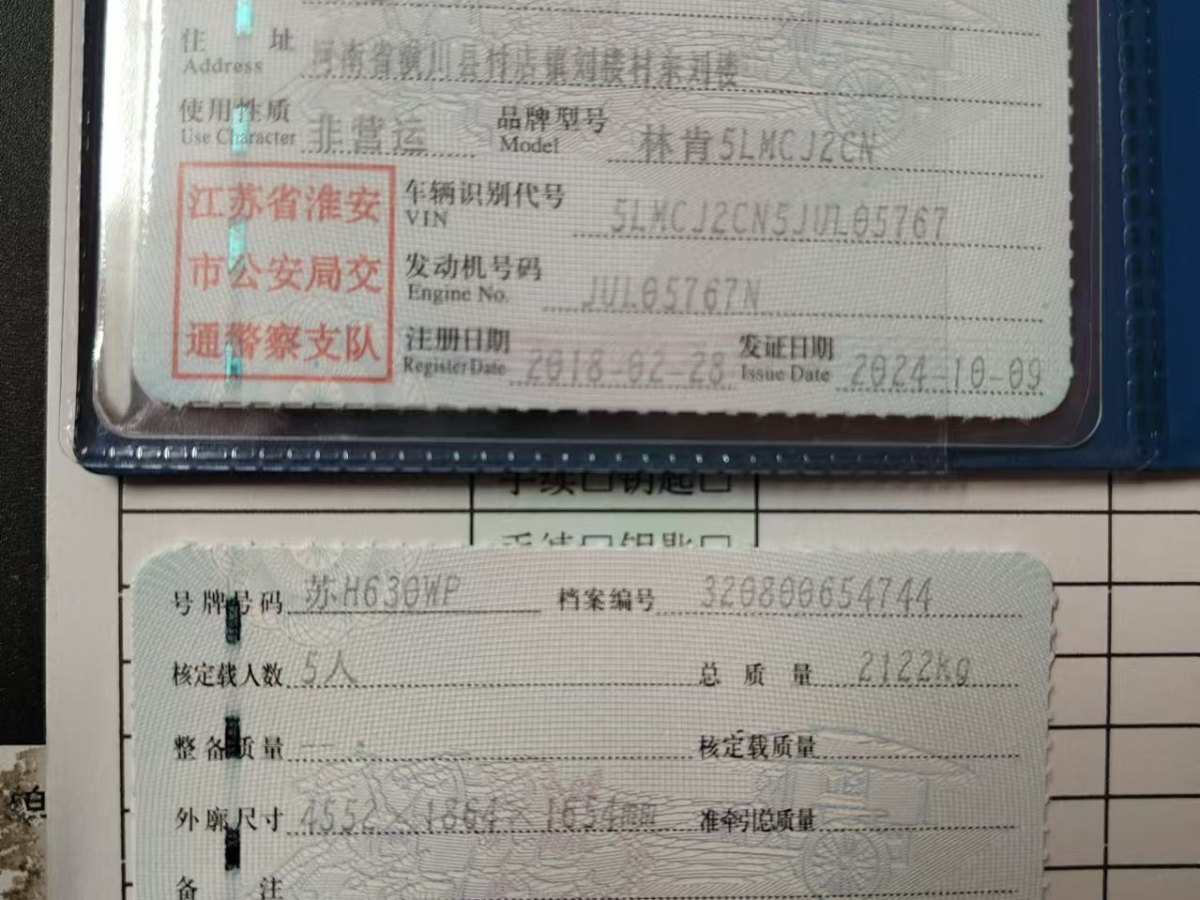 住 址 河南省潢川县付店镇刘楼村东刘楼
Address
使用性质 非营运 品牌型号 林肯5LMCJ2CN
Use Character Model
江苏省淮安
市公安局交
通警察支队
车辆识别代号 5LMCJ2CN5JUL05767
VIN
发动机号码 JUL05767N
Engine No.
注册日期 2018-02-28 发证日期 2024-10-09
Register Date Issue Date
手续□钥匙□
手续□钥匙□
号牌号码 苏H630WP 档案编号 320800654744
核定载人数 5人 总质量 2122kg
整备质量 -- 核定载质量
外廓尺寸 4552×1864×1654mm 准牵引总质量
备 注